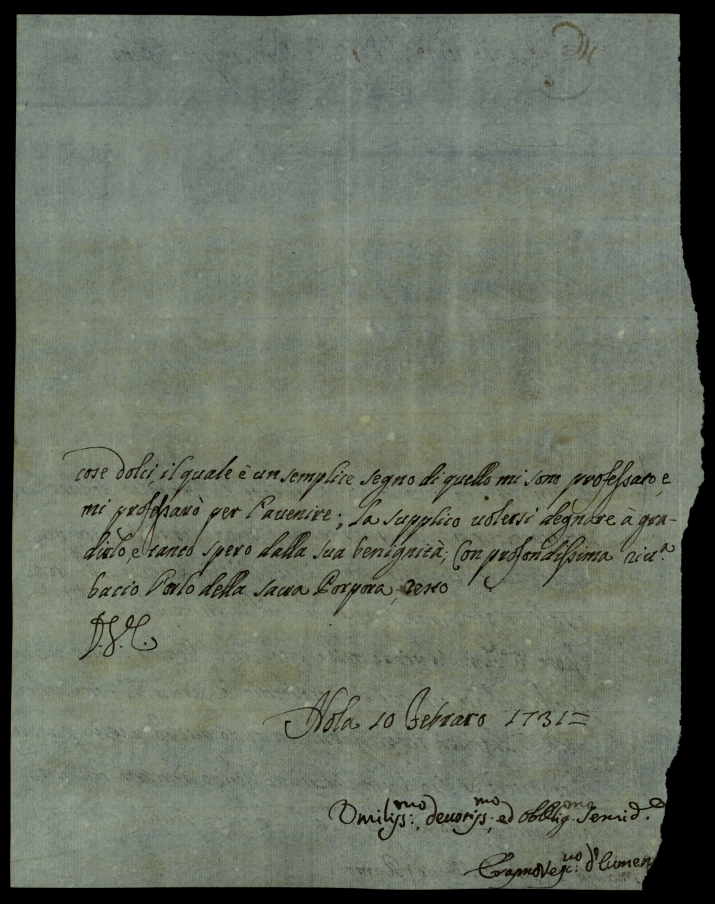 cose dolci, il quale è un semplice segno di quello mi son professato, e
mi professarò per l'avenire; La supplico volersi degnare à gra-
dirlo, e tanto spero dalla sua benignità, Con profondissima riv.a
bacio l'orlo della sacra Porpora, resto
D. V. E.
Nola 10 Febraro 1731=
Umiliss:mo, devotiss:mo, ed obblig.mo Servid.e
Vesc:vo d'